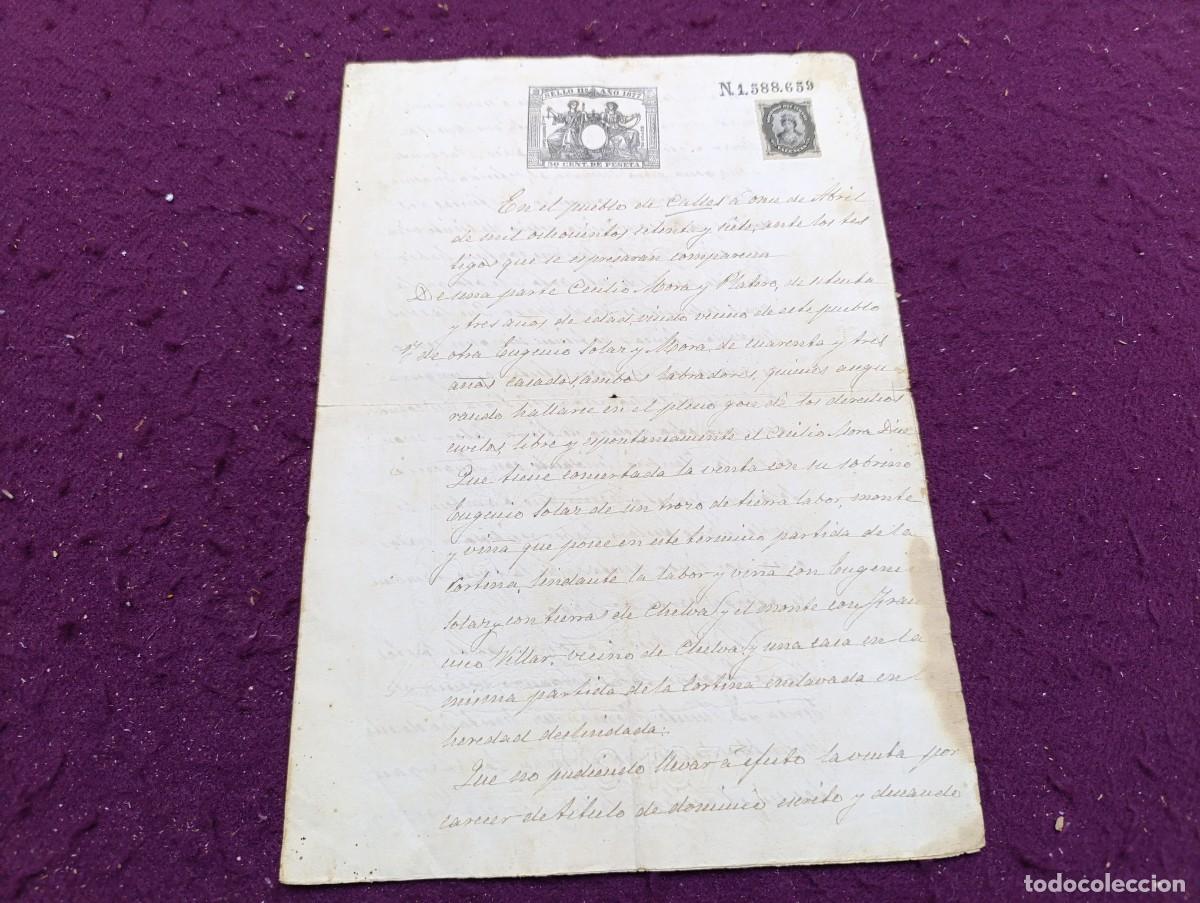 SELLO 11º AÑO 1877
50 CENT. DE PESETA
N.1.588.659
En el pueblo de Calles á once de Abril
de mil ochocientos setenta y siete, ante los tes
tigos que se espresarán comparecen
De una parte Cecilio Mora y Platero, de setenta
y tres años de edad, viudo vecino de este pueblo
y de otra Eugenio Solaz y Mora, de cuarenta y tres
años casados, ambos labradores, quienes asegu
rando hallarse en el pleno goce de los derechos
civiles, libre y espontaneamente el Cecilio Mora Dice
Que tiene concertada la venta con su sobrino
Eugenio Solaz de un trozo de tierra labor, monte
y viña que posee en este termino partida de la
Cortina, lindante la labor y viña con Eugenio
Solaz y con tierras de Chelva (y el monte con Fran
cisco Villar, vecino de Chelva) y una casa en la
misma partida de la Cortina enclavada en
heredad deslindada.
Que no pudiendo llevar á efecto la venta por
carecer de titulo de dominio escrito y deseando
todocoleccion